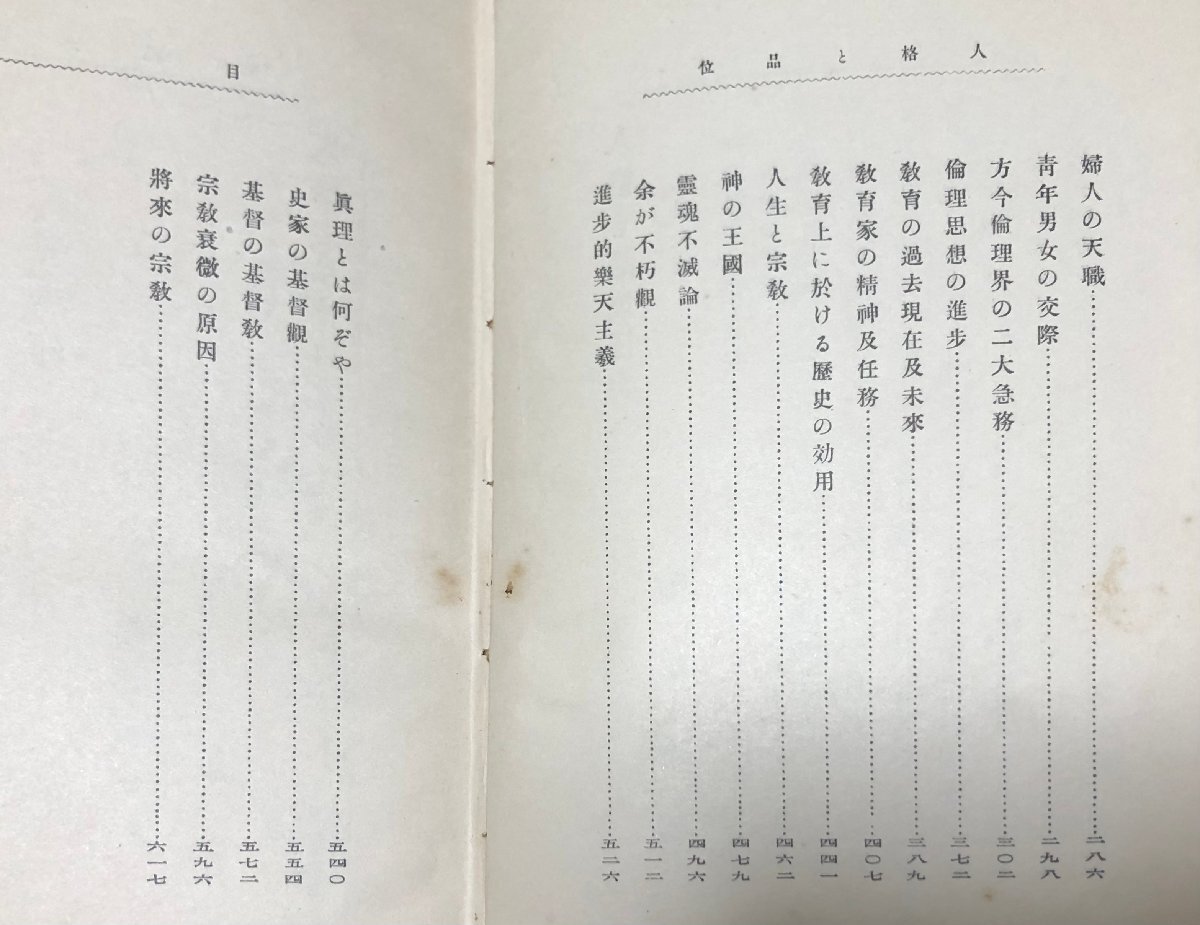 人格と品位
婦人の天職……二八六
靑年男女の交際……二九八
方今倫理界の二大急務……三〇二
倫理思想の進步……三七二
敎育の過去現在及未來……三八九
敎育家の精神及任務……四〇七
敎育上に於ける歷史の効用……四四一
人生と宗敎……四六二
神の王國……四七九
靈魂不滅論……四九六
余が不朽觀……五一二
進步的樂天主義……五二六
目
眞理とは何ぞや……五四〇
史家の基督觀……五五四
基督の基督敎……五七二
宗敎衰微の原因……五九六
將來の宗敎……六一七